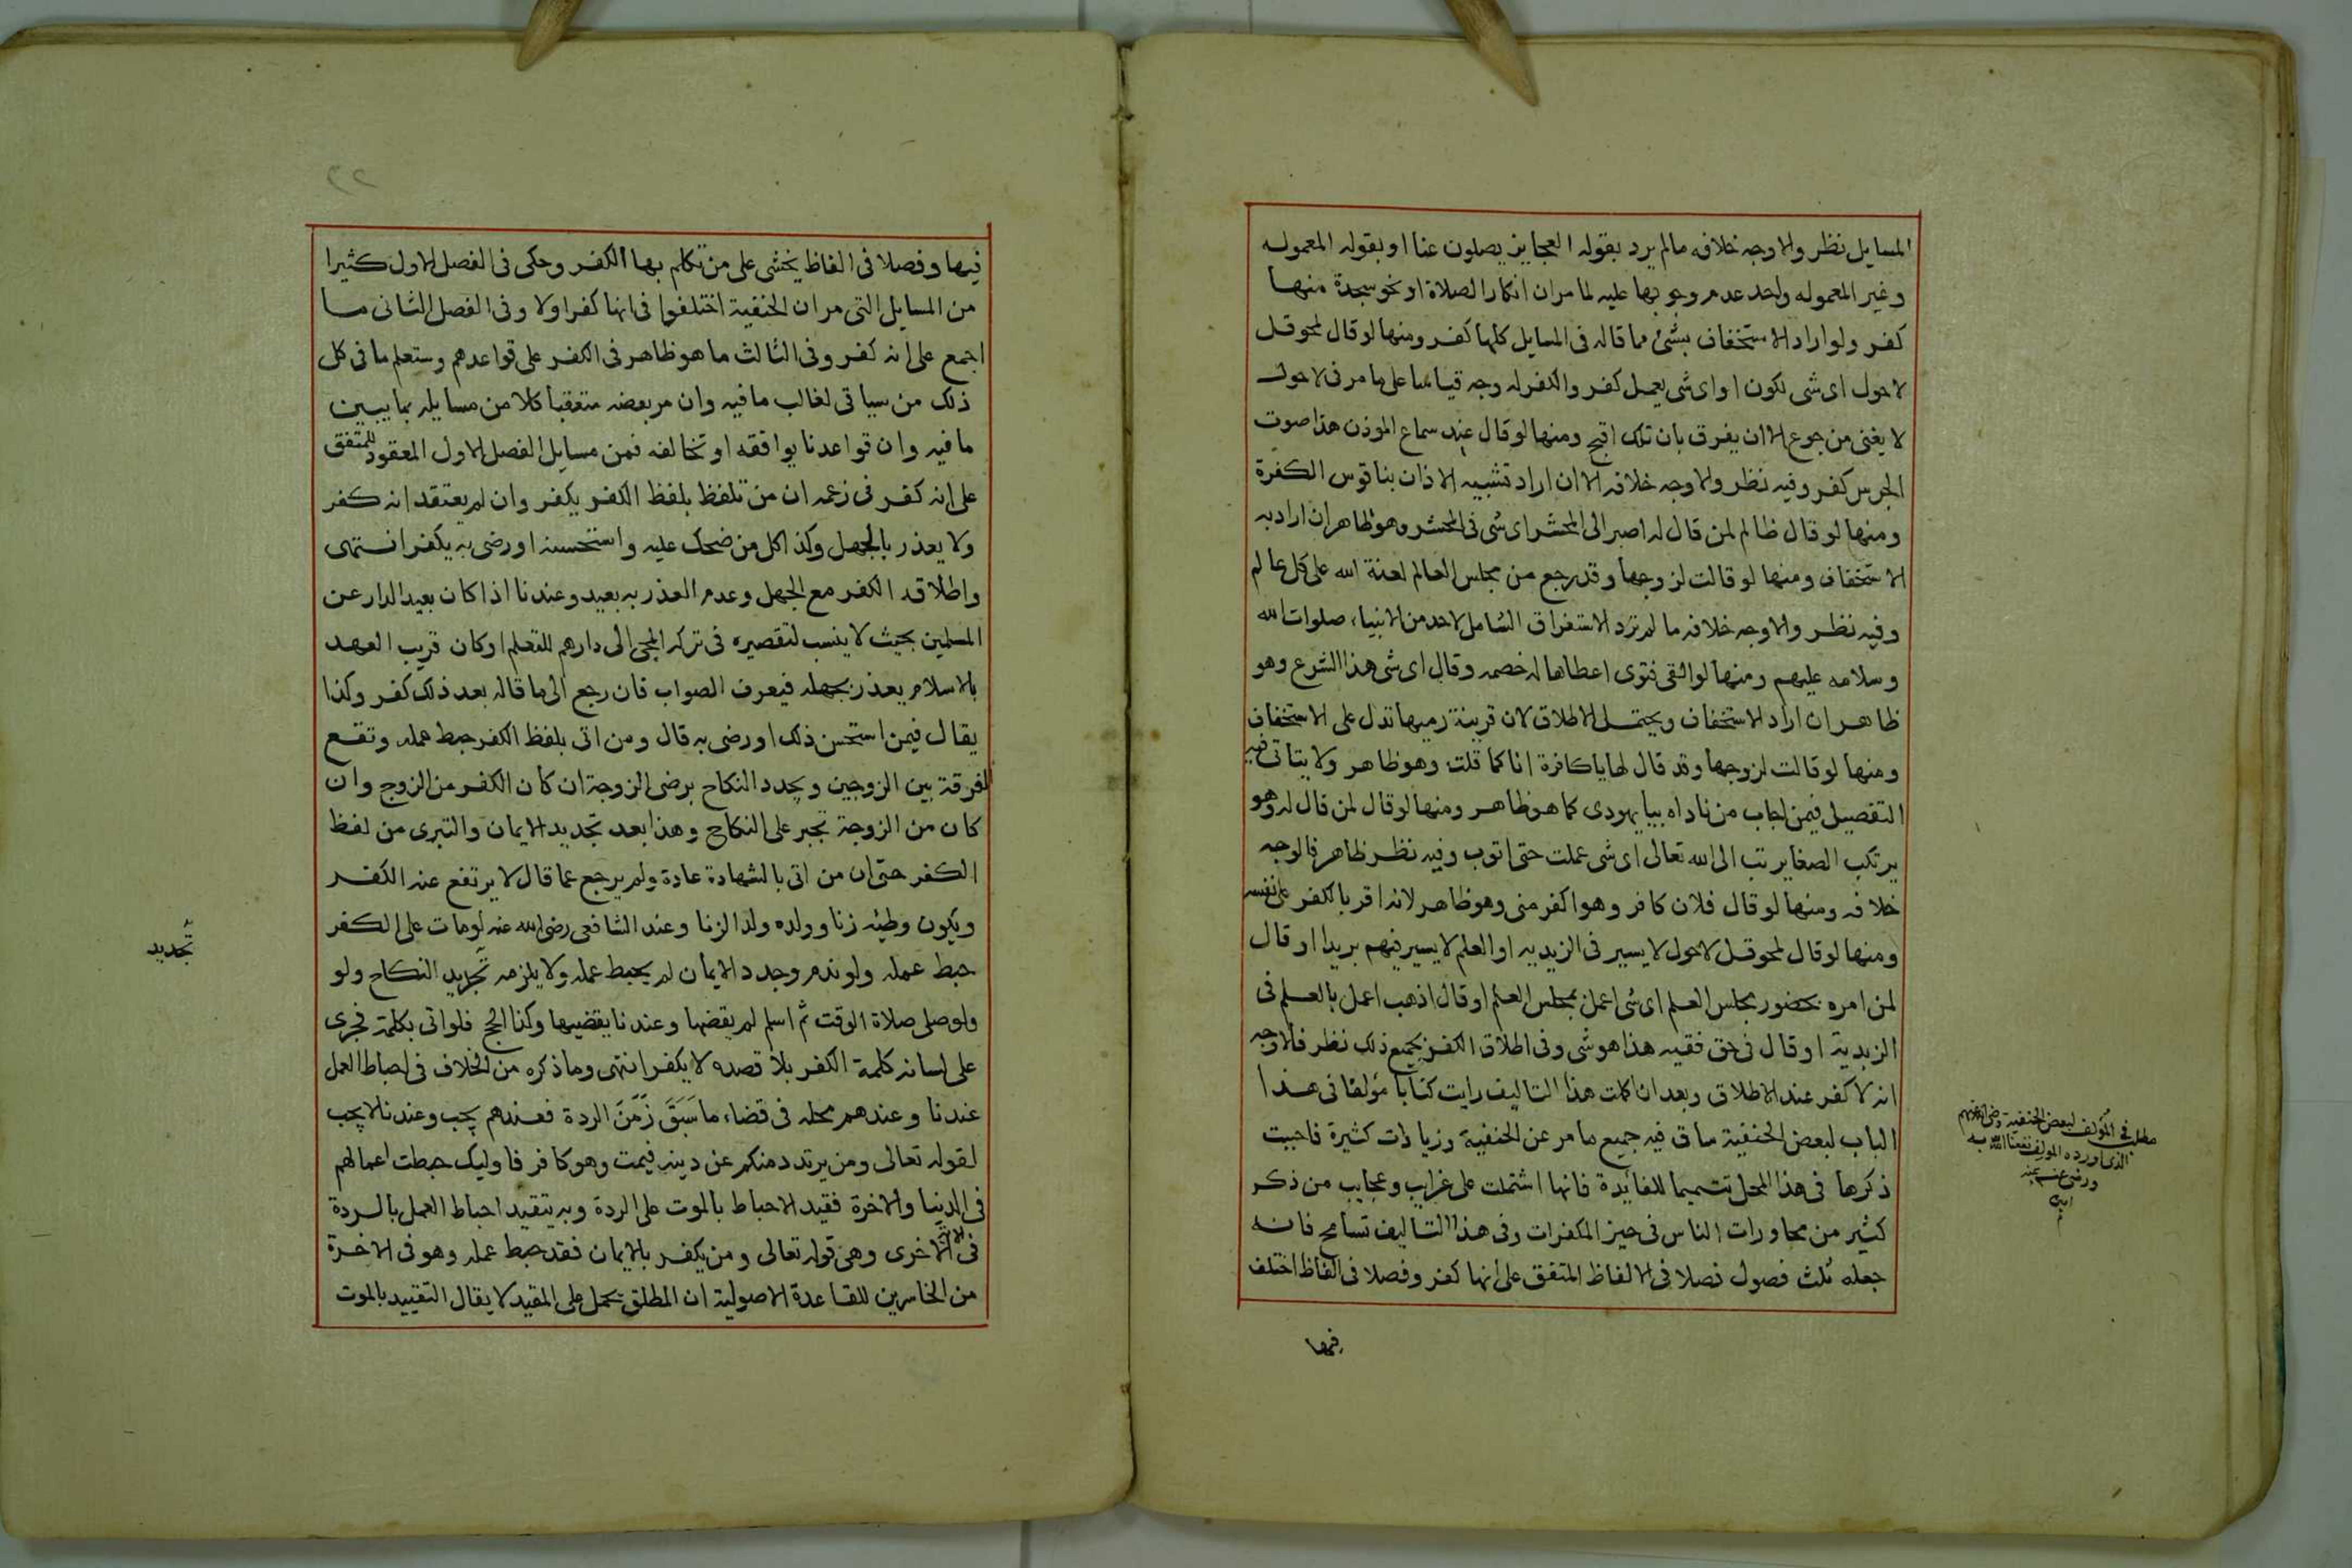 المسايل نظر والاوجه خلافه مالم يرد بقوله العجايز يصلون عنا او بقوله المعموله
وغير المعموله واحد عدم وجوبها عليه لما مران انكار الصلاة او نحو سجدة منها
كفر ولو اراد الاستخفاف بشئ مما قاله فى المسايل كلها كفر ومنها لو قال لمحوقل
لاحول اى شى يكون او اى شى يعمل كفر والكفر له وجه قياسا على ما مر فى لاحول
لا يغنى من جوع الا ان يفرق بان تلك اقبح ومنها لو قال عند سماع الموذن هذا صوت
الجرس كفر وفيه نظر والاوجه خلافه الا ان اراد تشبيه الاذان بناقوس الكفرة
ومنها لو قال ظالم لمن قال له اصبر الى المحشر اى شى فى المحشر وهو ظاهر ان اراد به
الاستخفاف ومنها لو قالت لزوجها وقد رجع من مجلس العالم لعنة الله على كل عالم
وفيه نظر والاوجه خلافه ما لم ترد الاستغراق الشامل لاحد من الانبياء صلوات الله
وسلامه عليهم ومنها لو القى فتوى اعطاها له خصمه وقال اى شى هذا الشرع وهو
ظاهر ان اراد الاستخفاف ويحتمل الاطلاق لان قرينة رميها تدل على الاستخفاف
ومنها لو قالت لزوجها وقد قال لها يا كافرة انا كما قلت وهو ظاهر ولا يتاتى فيه
التفصيل فيمن اجاب من ناداه بيا يهودى كما هو ظاهر ومنها لو قال لمن قال له وهو
يرتكب الصغاير تب الى الله تعالى اى شى عملت حتى اتوب وفيه نظر ظاهر فالوجه
خلافه ومنها لو قال فلان كافر وهو اكفر منى وهو ظاهر لانه اقر بالكفر على نفسه
ومنها لو قال لمحوقل لاحول لا يسير فى الزيديه او العلم لا يسير فيهم بريدا او قال
لمن امره بحضور مجلس العلم اى شى اعمل بمجلس العلم او قال اذهب اعمل بالعلم فى
الزبدية او قال فى حق فقيه هذا هو شى وفى اطلاق الكفر بجميع ذلك نظر فالاوجه
انه لا كفر عند الاطلاق وبعد ان اكملت هذا التاليف رايت كتابا مؤلفا فى هذا
الباب لبعض الحنفية ساق فيه جميع ما مر عن الحنفية وزيادات كثيرة فاحببت
ذكرها فى هذا المحل تتميما للفايدة فانها اشتملت على غرايب وعجايب من ذكر
كثير من محاورات الناس فى حيز المكفرات وفى هذا التاليف تسامح فانه
جعله ثلث فصول فصلا فى الالفاظ المتفق على انها كفر وفصلا فى الفاظ اختلف
فيها
مطلب فى المؤلف لبعض الحنفية رضى الله عنهم
الذى اورده المولف نفعنا الله به
ورضى عنه بمنه
امين
م
٢٢
فيها وفصلا فى الفاظ يخشى على من تكلم بها الكفر وحكى فى الفصل الاول كثيرا
من المسايل التى مر ان الحنفية اختلفوا فى انها كفر او لا وفى الفصل الثانى ما
اجمع على انه كفر وفى الثالث ما هو ظاهر فى الكفر على قواعدهم وستعلم ما فى كل
ذلك من سياقى لغالب ما فيه وان مر بعضه متعقبا كلا من مسايله بما يبين
ما فيه وان قواعدنا يوافقه او تخالفه فمن مسايل الفصل الاول المعقود للمتفق
على انه كفر فى زعمه ان من تلفظ بلفظ الكفر يكفر وان لم يعتقد انه كفر
ولا يعذر بالجهل وكذا كل من ضحك عليه واستحسنه او رضى به يكفر انتهى
واطلاقه الكفر مع الجهل وعدم العذر به بعيد وعندنا اذا كان بعيد الدار عن
المسلمين بحيث لا ينسب لتقصيره فى تركه المجئ الى دارهم للتعلم او كان قريب العهد
بالاسلام يعذر بجهله فيعرف الصواب فان رجع الى ما قاله بعد ذلك كفر وكذا
يقال فيمن استحسن ذلك او رضى به قال ومن اتى بلفظ الكفر حبط عمله وتقع
الفرقة بين الزوجين ويجدد النكاح برضى الزوجة ان كان الكفر من الزوج وان
كان من الزوجة تجبر على النكاح وهذا بعد تجديد الايمان والتبرى من لفظ
الكفر حتى ان من اتى بالشهادة عادة ولم يرجع عما قال لا يرتفع عنه الكفر
ويكون وطيه زنا وولده ولد الزنا وعند الشافعى رضى الله عنه لو مات على الكفر
حبط عمله ولو ندم وجدد الايمان لم يحبط عمله ولا يلزمه تجديد النكاح ولو
ولو صلى صلاة الوقت ثم اسلم لم يقضها وعندنا يقضيها وكذا الحج فلو اتى بكلمة فجرى
على لسانه كلمة الكفر بلا قصد لا يكفر انتهى وما ذكره من الخلاف فى احباط العمل
عندنا وعندهم محله فى قضاء ما سَبَقَ زَمَنَ الردة فعندهم يجب وعندنا لا يجب
لقوله تعالى ومن يرتدد منكم عن دينه فيمت وهو كافر فاوليك حبطت اعمالهم
فى الدنيا والاخرة فقيد الاحباط بالموت على الردة وبه يتقيد احباط العمل بالردة
فى الاية الاخرى وهى قوله تعالى ومن يكفر بالايمان فقد حبط عمله وهو فى الاخرة
من الخاسرين للقاعدة الاصولية ان المطلق يحمل على المقيد لا يقال التقييد بالموت
تجديد